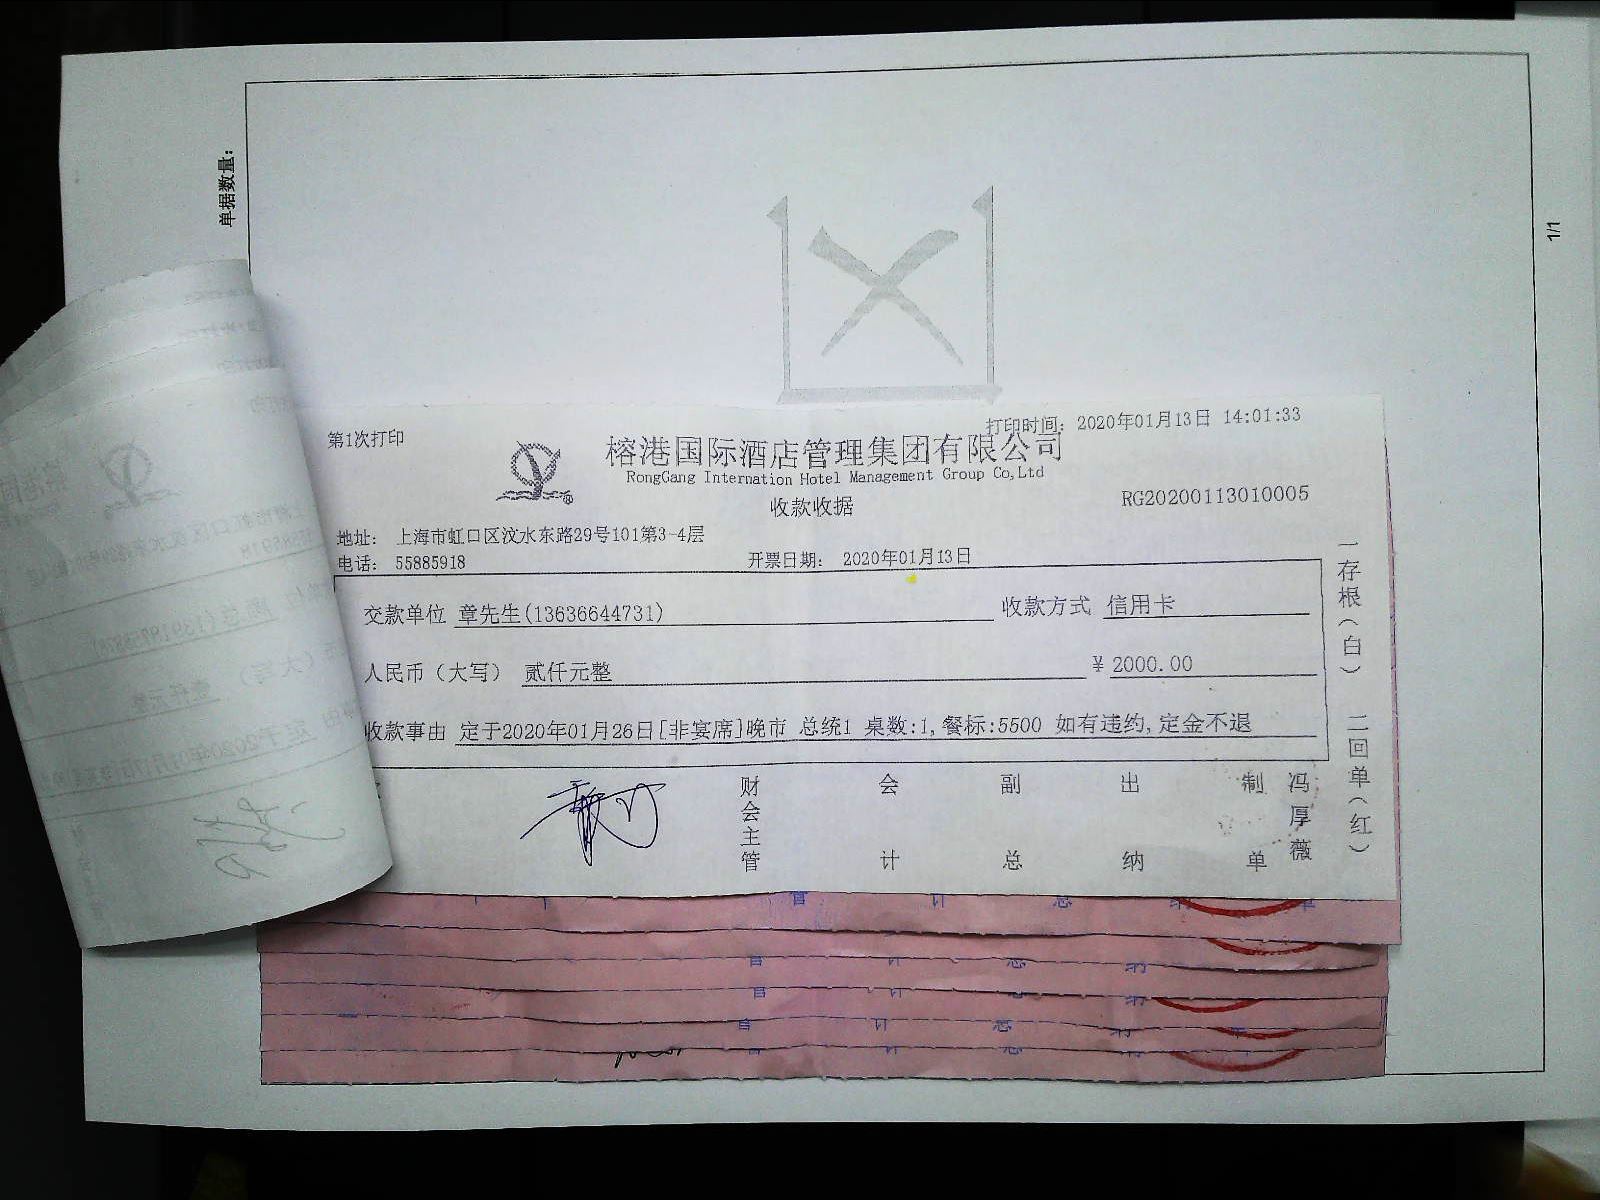 单据数量:
1/1
第1次打印
打印时间: 2020年01月13日 14:01:33
榕港国际酒店管理集团有限公司
RongGang Internation Hotel Management Group Co,Ltd
收款收据
RG20200113010005
地址: 上海市虹口区汶水东路29号101第3-4层
电话: 55885918
开票日期: 2020年01月13日
交款单位 章先生(13636644731)
收款方式 信用卡
人民币(大写) 贰仟元整
¥ 2000.00
收款事由 定于2020年01月26日[非宴席]晚市 总统1 桌数:1,餐标:5500 如有违约,定金不退
财会主管
会计
副总
出纳
制单
冯厚薇
一存根(白) 二回单(红)